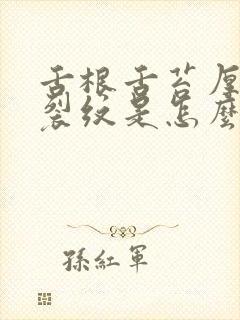 舌根舌苔厚
裂纹是怎麼
孫紅軍